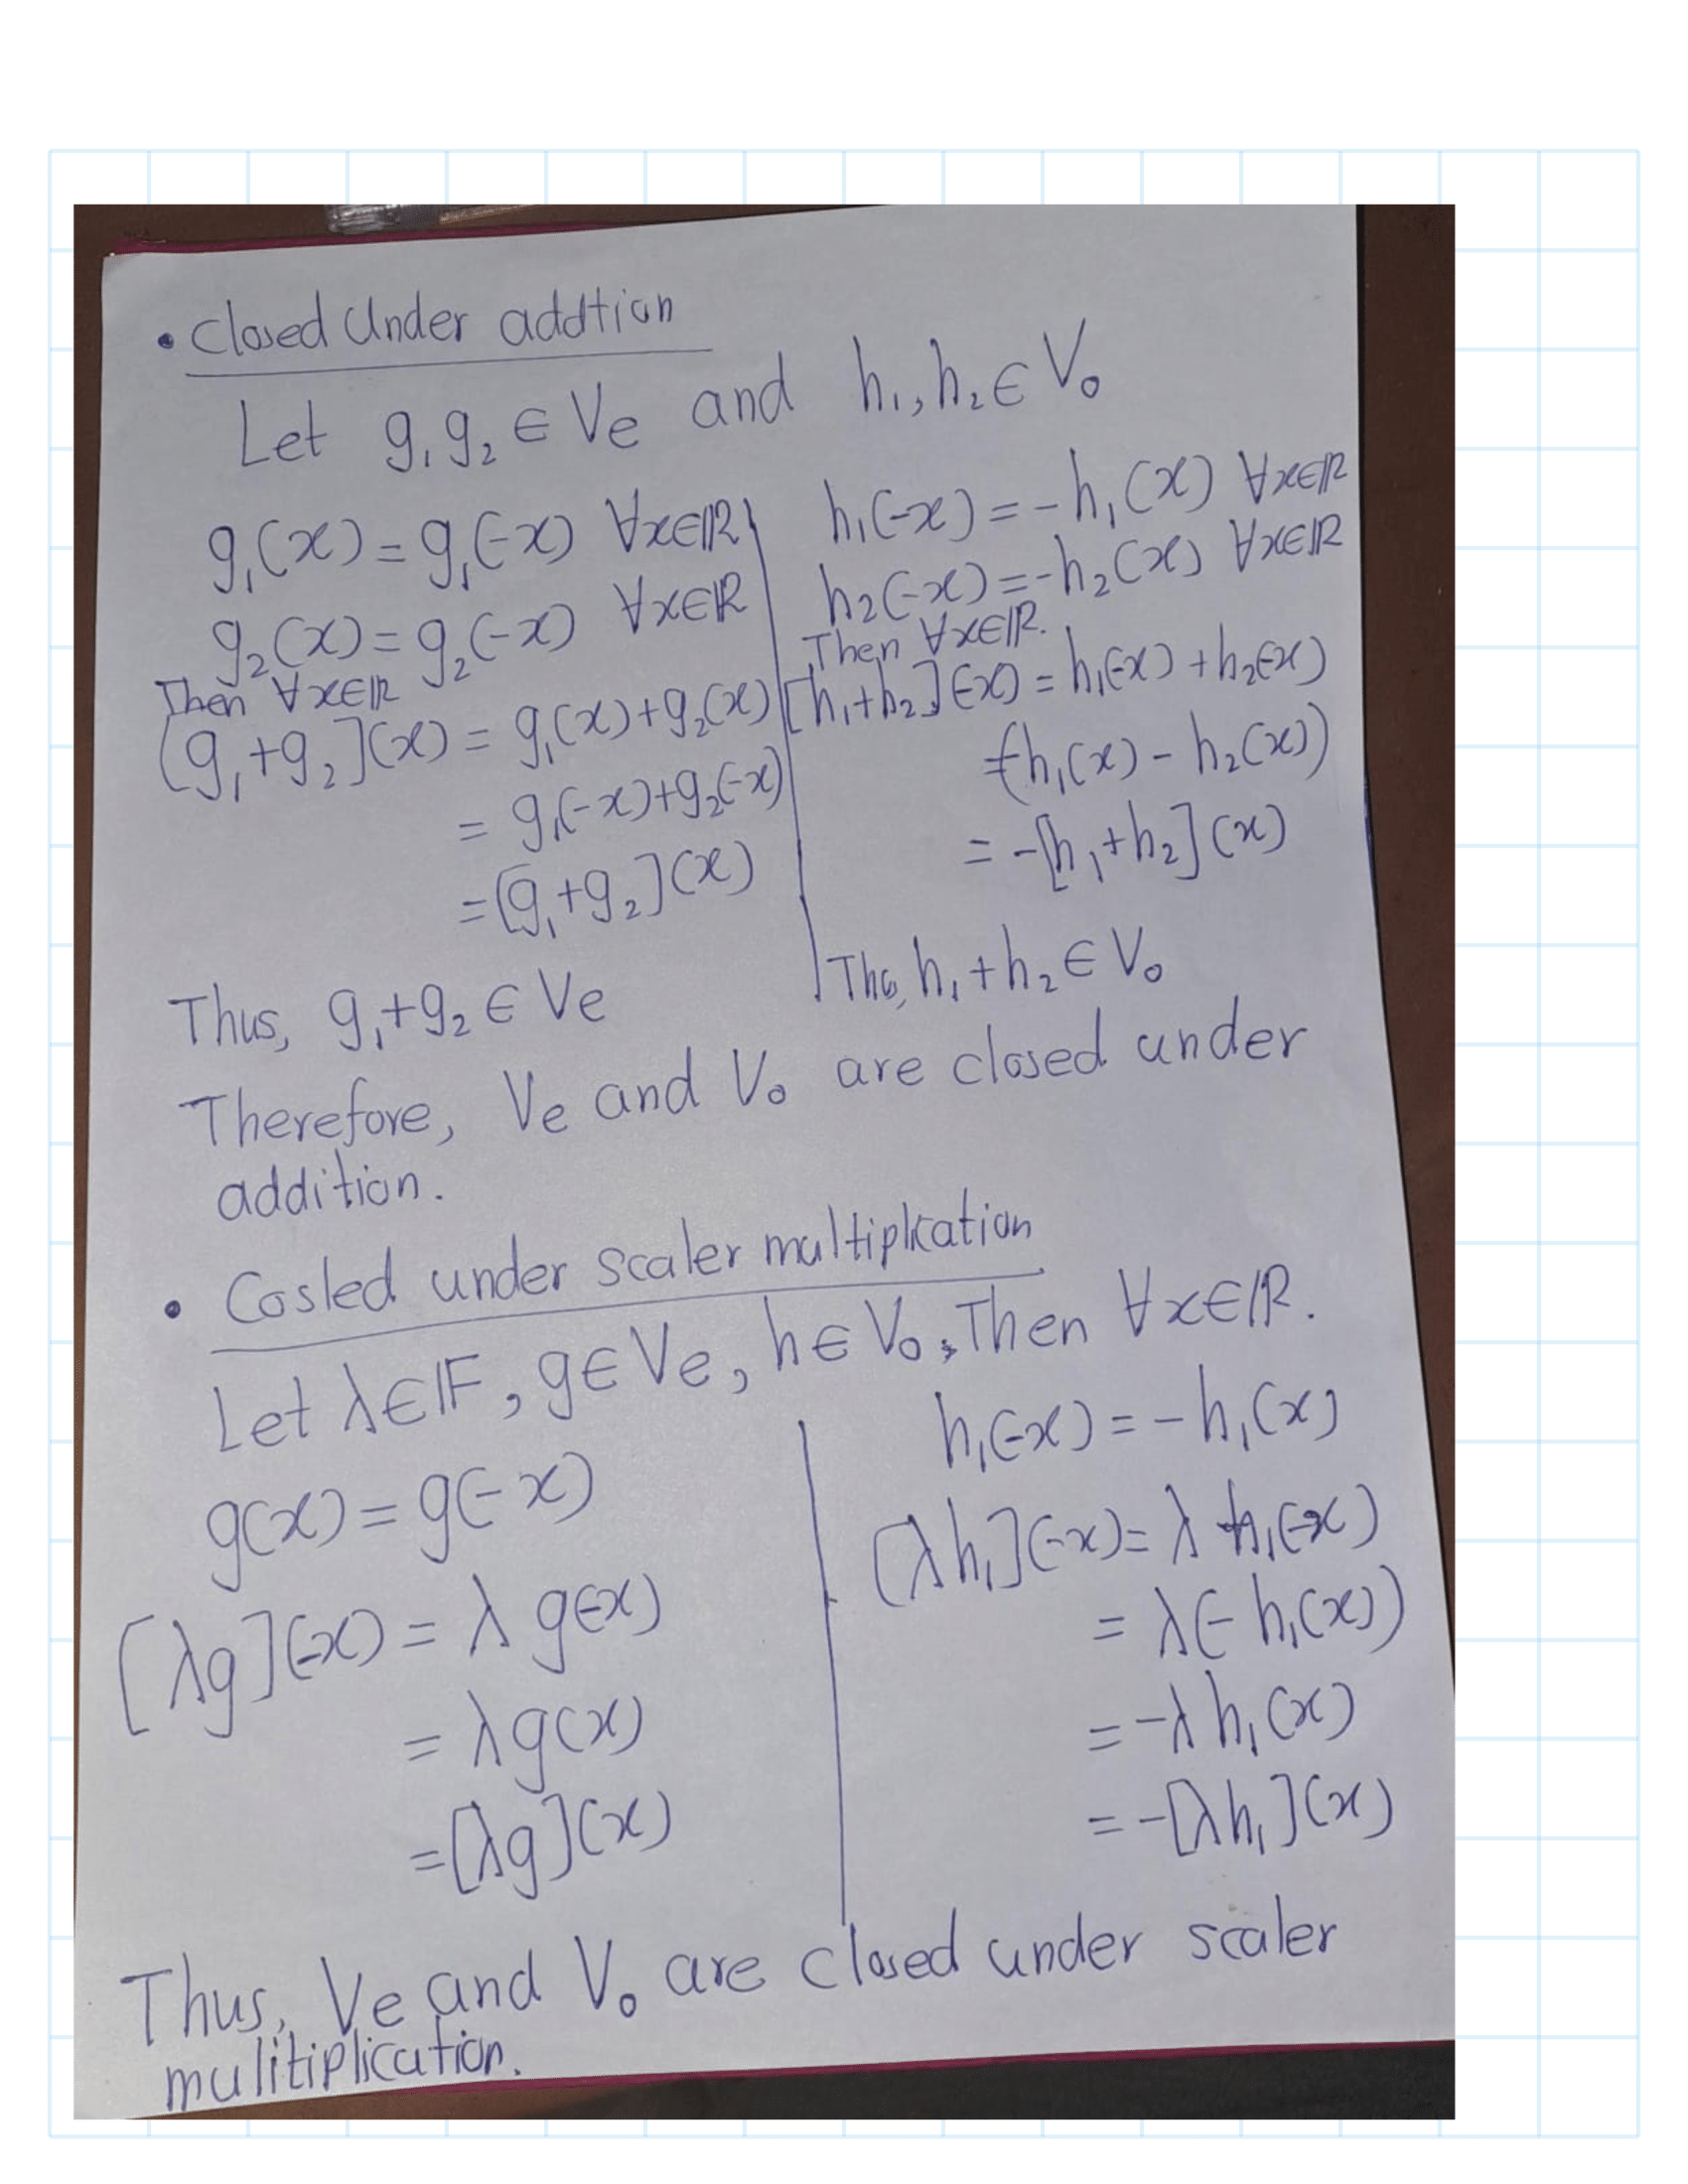 • Closed Under addtion
Let g₁ g₂ ∈ Ve and h₁, h₂ ∈ V₀
g₁(x) = g₁(-x) ∀x∈ℝ
g₂(x) = g₂(-x) ∀x∈ℝ
Then ∀x∈ℝ
[g₁+g₂](x) = g₁(x)+g₂(x)
= g₁(-x)+g₂(-x)
=[g₁+g₂](x)
Thus, g₁+g₂ ∈ Ve
h₁(-x) = -h₁(x) ∀x∈ℝ
h₂(-x) = -h₂(x) ∀x∈ℝ
Then ∀x∈ℝ.
[h₁+h₂](-x) = h₁(-x) + h₂(-x)
=(-h₁(x) - h₂(x))
= -[h₁+h₂](x)
Thus, h₁+h₂ ∈ V₀
Therefore, Ve and V₀ are closed under
addition.
• Cosled under scaler multiplication
Let λ∈𝔽, g∈Ve, h∈V₀, Then ∀x∈ℝ.
g(x) = g(-x)
[λg](-x) = λ g(-x)
= λg(x)
=[λg](x)
h₁(-x) = -h₁(x)
[λh₁](-x) = λ h₁(-x)
= λ(-h₁(x))
= -λ h₁(x)
= -[λh₁](x)
Thus, Ve and V₀ are closed under scaler
mulitiplication.